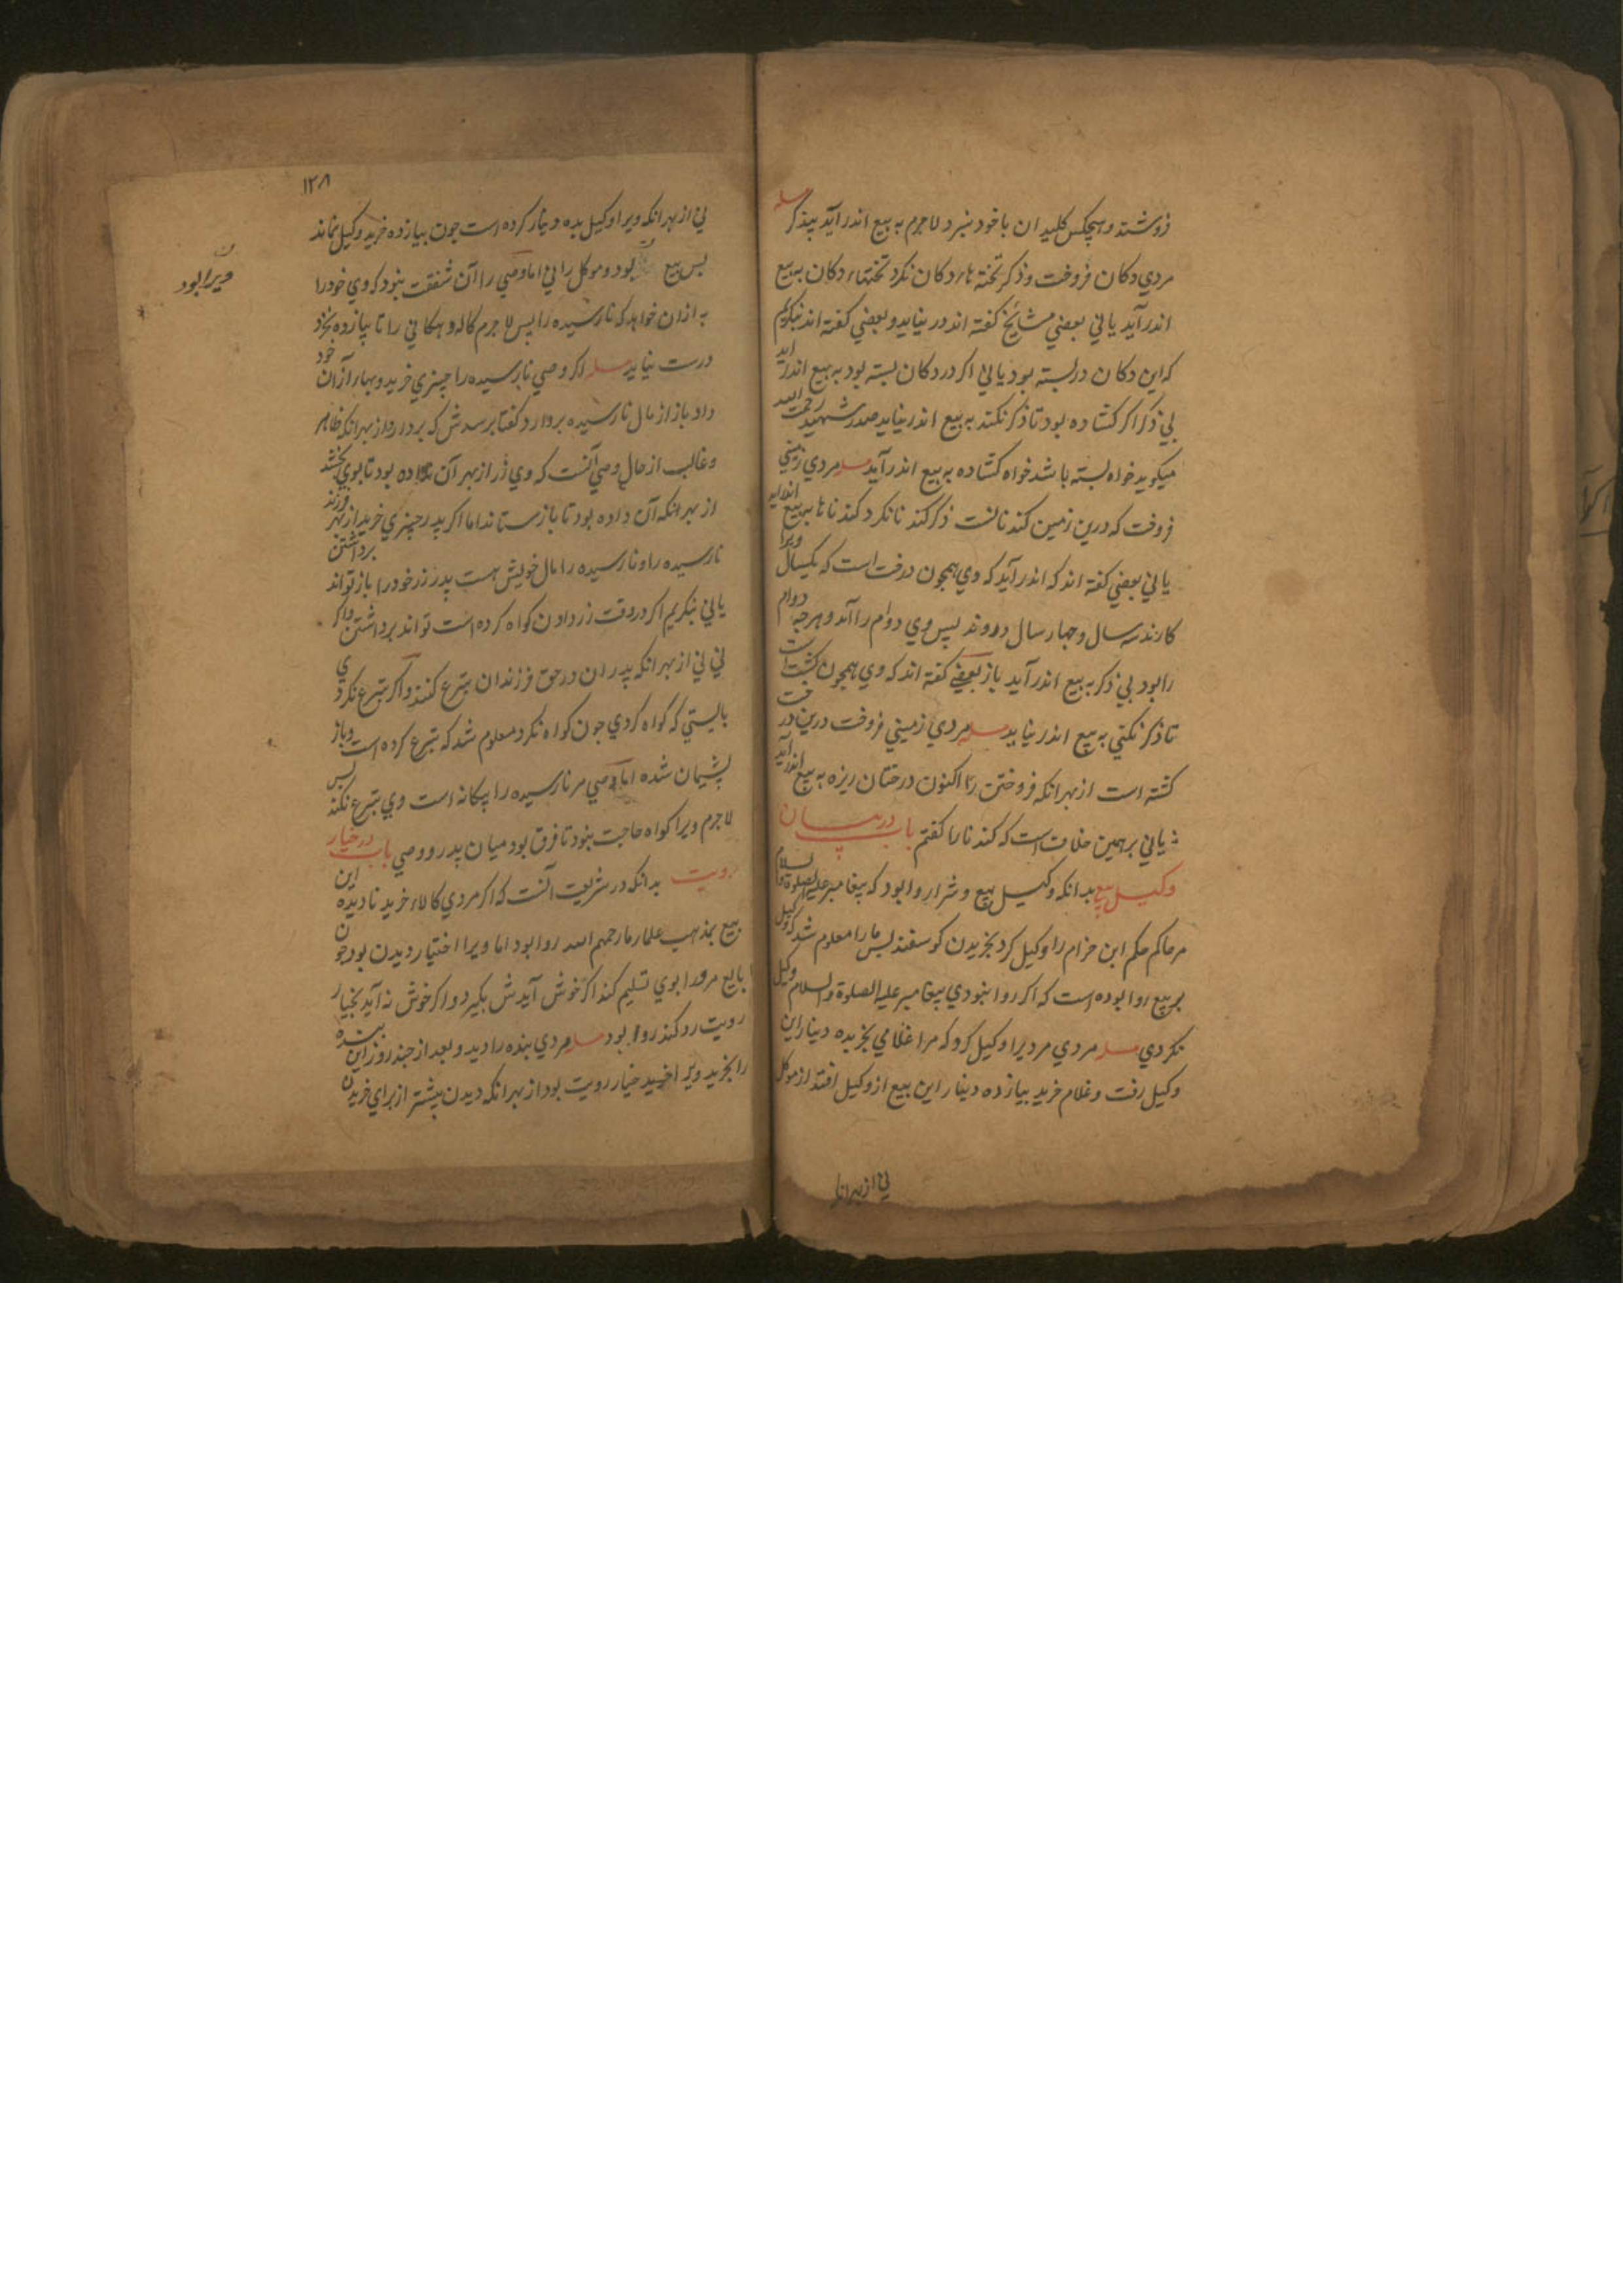 فروشند و هیچکس کلیدان با خود نبرد لاجرم به بیع اندر آید بیذکر مسله
مردي دکان فروخت و ذکر تخته هاء دکان نکرد تختهاء دکان به بیع
اندر آید یا ني بعضي مشائخ کفته اند در نیاید و بعضي کفته اند بنکریم
که این دکان در بسته بود یا ني اکر در دکان بسته بود به بیع اندر آید
بي ذکر اکر کشاده بود تا ذکر نکند به بیع اندر نیاید صدر شهید رحمت الله
میکوید خواه بسته باشد خواه کشاده به بیع اندر آید مسله مردي زمیني
فروخت که درین زمین کندناست ذکر کندنا نکرد کندناها به بیع اندر آید
یا ني بعضي کفته اند که اندر آید که وي همچون درخت است که یکسال ویرا
کارند سه سال و چهار سال دروند پس وي دوام را آمد و هرچه دوام
را بود بي ذکر به بیع اندر آید باز بعضي کفته اند که وي همچون کشت است
تا ذکر نکني به بیع اندر نیاید مسله مردي زمیني فروخت درین درخت
کشته است از بهر انکه فروختن را اکنون درختان ریزه به بیع اندر آید
یا ني برهمین خلاف است که کندنا را کفتم باب در بیان
وکیل بیع بدانکه وکیل بیع و شرا روا بود که پیغامبر علیه الصلوة والسلام
مر حاکم حکم ابن حزام را وکیل کرد بخریدن کوسفند پس ما را معلوم شد که وکیل
بر بیع روا بوده است که اکر روا نبودي پیغامبر علیه الصلوة والسلام وکیل
نکردي مسله مردي مردیرا وکیل کرد که مرا غلامي بخر بده دینار این
وکیل رفت و غلام خرید بیازده دینار این بیع از وکیل افتد از موکل
ني از بهر انک
۱۲۸
ني از بهر انکه ویرا وکیل بده دینار کرده است چون بیازده خرید وکیل نماند
پس بیع بود و موکل را ني اما وصي را آن شفقت نبود که وي خود را
ویرا بود
به از ان خواهد که نارسیده را پس لاجرم کاله دهکاني را تا بیازده نخرد
درست نیاید مسله اکر وصي نارسیده را چیزي خرید و بهاء از آن خود
داد باز از مال نارسیده بردارد کفتا برسدش که بردارد از بهر انکه ظاهر
و غالب از حال وصي آنست که وي زر از بهر آن داده بود تا بوي بخشد
از بهر انکه آن داده بود تا باز ستاند اما اکر پدر چیزي خرید از بهر فرزند
نارسیده را و نارسیده را مال خویش هست پدر زر خود را باز تواند برداشتن
یا ني بنکریم اکر در وقت زر دادن کواه کرده است تواند برداشتن و اکر
ني ني از بهر انکه پدران در حق فرزندان تبرع کنند و اکر تبرع نکردي
بایستي که کواه کردي چون کواه نکرد معلوم شد که تبرع کرده است و باز
پشیمان شده اما وصي مر نارسیده را بیکانه است وي تبرع نکند پس
لاجرم ویرا کواه حاجت نبود تا فرق بود میان پدر و وصي باب در خیار
رویت بدانکه در شریعت آنست که اکر مردي کالاء خرید نادیده این
بیع بمذهب علماء ما رحمهم الله روا بود اما ویرا اختیار دیدن بود چون
بایع مر ورا بوي تسلیم کند اکر خوش آیدش بکیرد و اکر خوش نه آید بخیار
رویت رد کند روا بود مسله مردي بنده را دید و بعد از چند روز این بنده
را بخرید ویرا خیار رویت بود از بهر انکه دیدن پیشتر از براي خریدن